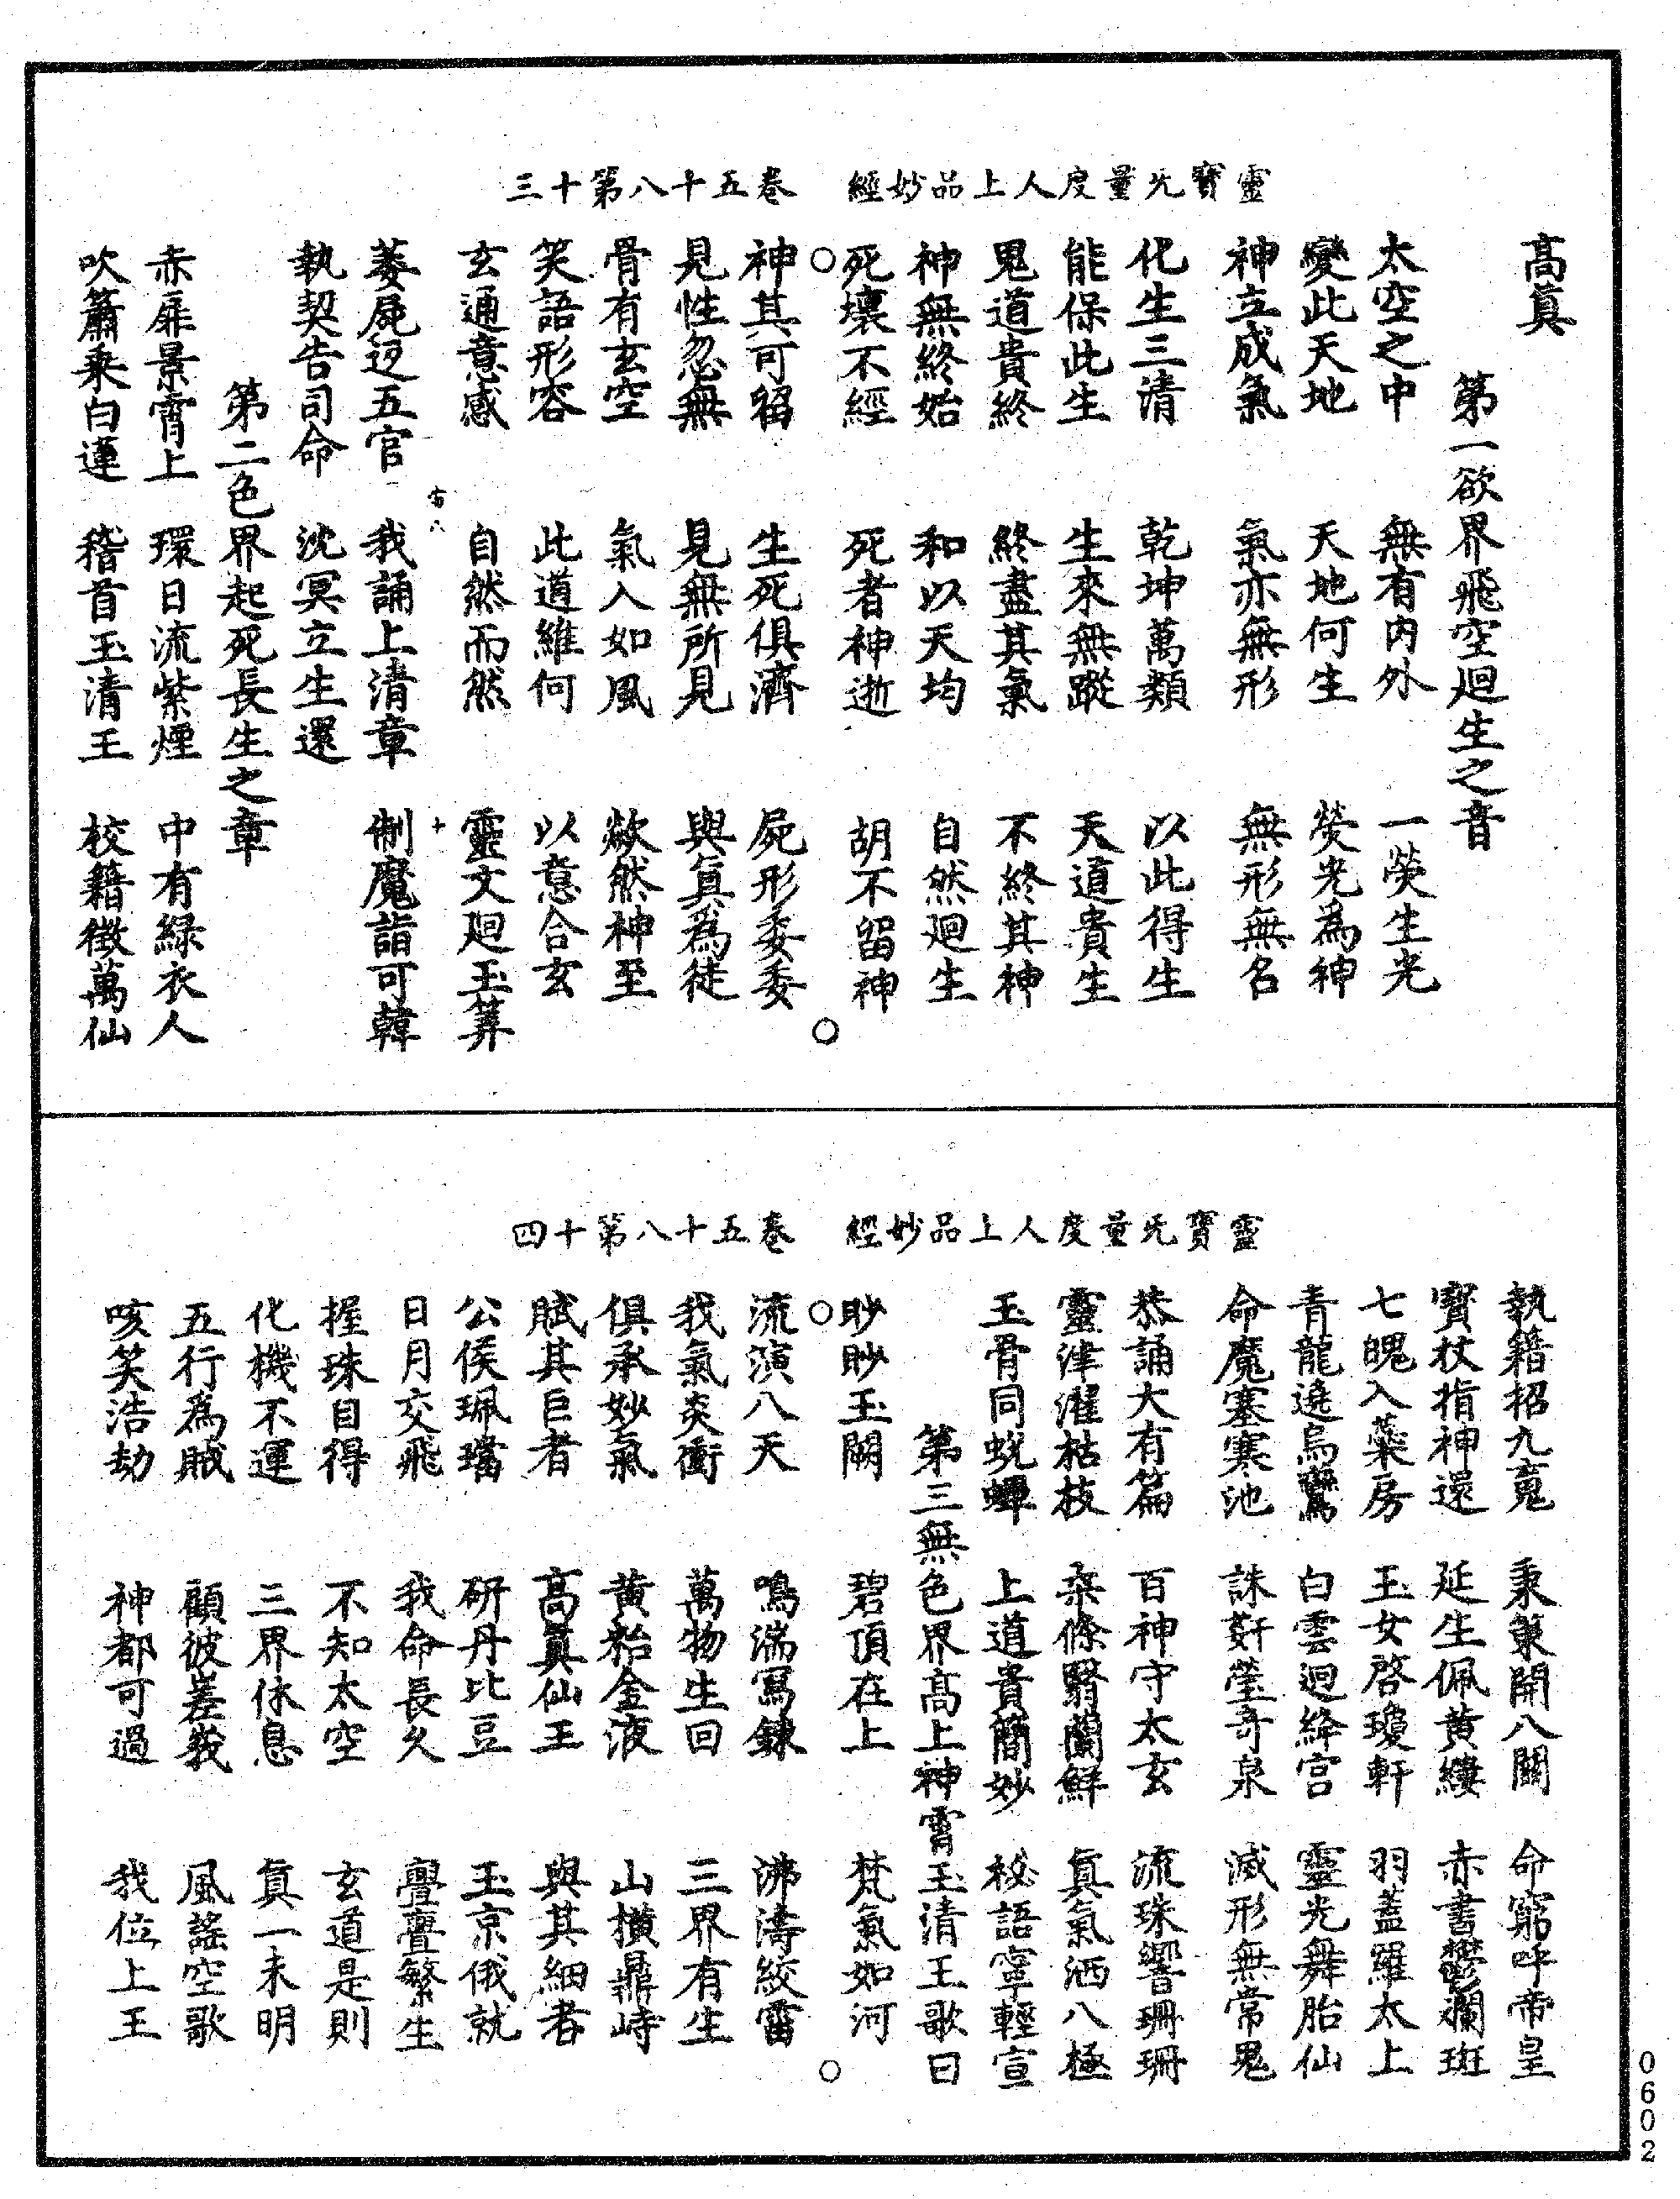 靈寶无量度人上品妙經　卷五十八第十三
高真
第一欲界飛空迴生之音
太空之中　無有內外　一熒生光
變此天地　天地何生　熒光為神
神立成氣　氣亦無形　無形無名
化生三清　乾坤萬類　以此得生
能保此生　生來無蹤　天道貴生
鬼道貴終　終盡其氣　不終其神
神無終始　和以天均　自然迴生
死壞不經　死者神逝　胡不留神
神其可留　生死俱濟　屍形委委
見性忽無　見無所見　與真為徒
骨有玄空　氣入如風　歘然神至
笑語形容　此道維何　以意合玄
玄通意感　自然而然　靈文迴玉筭
萎屍返五官　我誦上清章　制魔詣可韓
執契告司命　沈冥立生還
第二色界起死長生之章
赤扉景霄上　環日流紫煙　中有綠衣人
吹簫乘白蓮　稽首玉清王　校籍徵萬仙
靈寶无量度人上品妙經　卷五十八第十四
執籍招九䰟　秉策開八關　命窮呼帝皇
寶杖指神還　延生佩黃縷　赤書鬱斕斑
七魄入蘂房　玉女啓瓊軒　羽蓋羅太上
青龍遶烏鸞　白雲迴絳宮　靈光舞胎仙
命魔塞寒池　誅奸瑩奇泉　滅形無常鬼
恭誦大有篇　百神守太玄　流珠響珊珊
靈津濯枯枝　柔條翳蘭鮮　真氣洒八極
玉骨同蛻蟬　上道貴簡妙　祕語寧輕宣
第三無色界高上神霄玉清王歌曰
眇眇玉闕　碧頂在上　梵氣如河
流演八天　鳴湍寫鍊　沸濤絞雷
我氣炎衝　萬物生回　三界有生
俱承妙氣　黃粭金液　山橫鼎峙
賦其巨者　高真仙王　與其細者
公侯珮璫　研丹比豆　玉京俄就
日月交飛　我命長久　亹亹繁生
握珠自得　不知太空　玄道是則
化機不運　三界休息　真一未明
五行為賊　顧彼嵳峩　風謠空歌
咳笑浩劫　神都可過　我位上王
0602